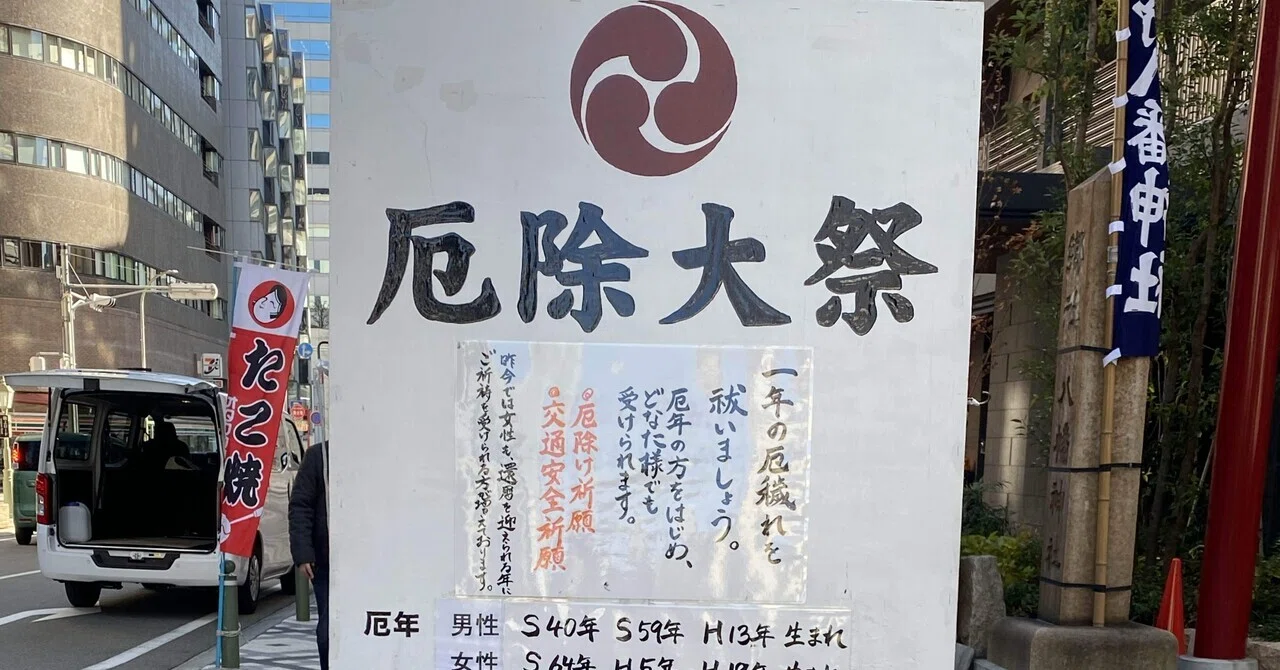 厄除大祭
一年の厄穢れを
祓いましょう。
厄年の方をはじめ、
どなた様でも
受けられます。
厄除け祈願
交通安全祈願
昨今では女性も還暦を迎えられる年に
ご祈祷を受けられる方が増えております。
厄年 男性 S40年 S59年 H13年 生まれ
女性 S64年 H5年 H19年 生まれ
たこ焼
八幡神社
郷社八幡神社